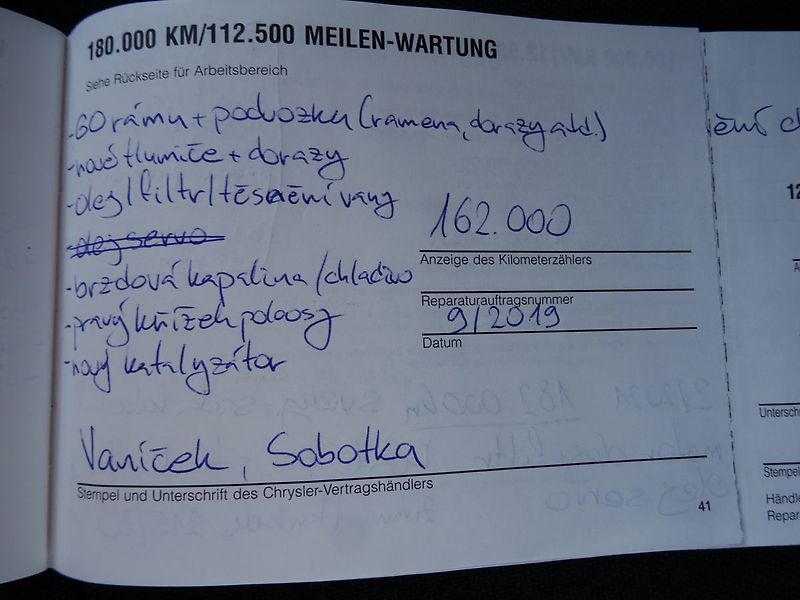 180.000 KM/112.500 MEILEN-WARTUNG
Siehe Rückseite für Arbeitsbereich
-GO rámu + podvozku (ramena, dorazy atd.)
-nové tlumiče + dorazy
-olej/filtr/těsnění vany
-olej servo
-brzdová kapalina/chladivo
-pravý křížek poloosy
-nový katalyzátor
162.000
Anzeige des Kilometerzählers
Reparaturauftragsnummer
9/2019
Datum
Vaníček, Sobotka
Stempel und Unterschrift des Chrysler-Vertragshändlers
41
ění
12
Untersch
Stempel
Händle
Repar